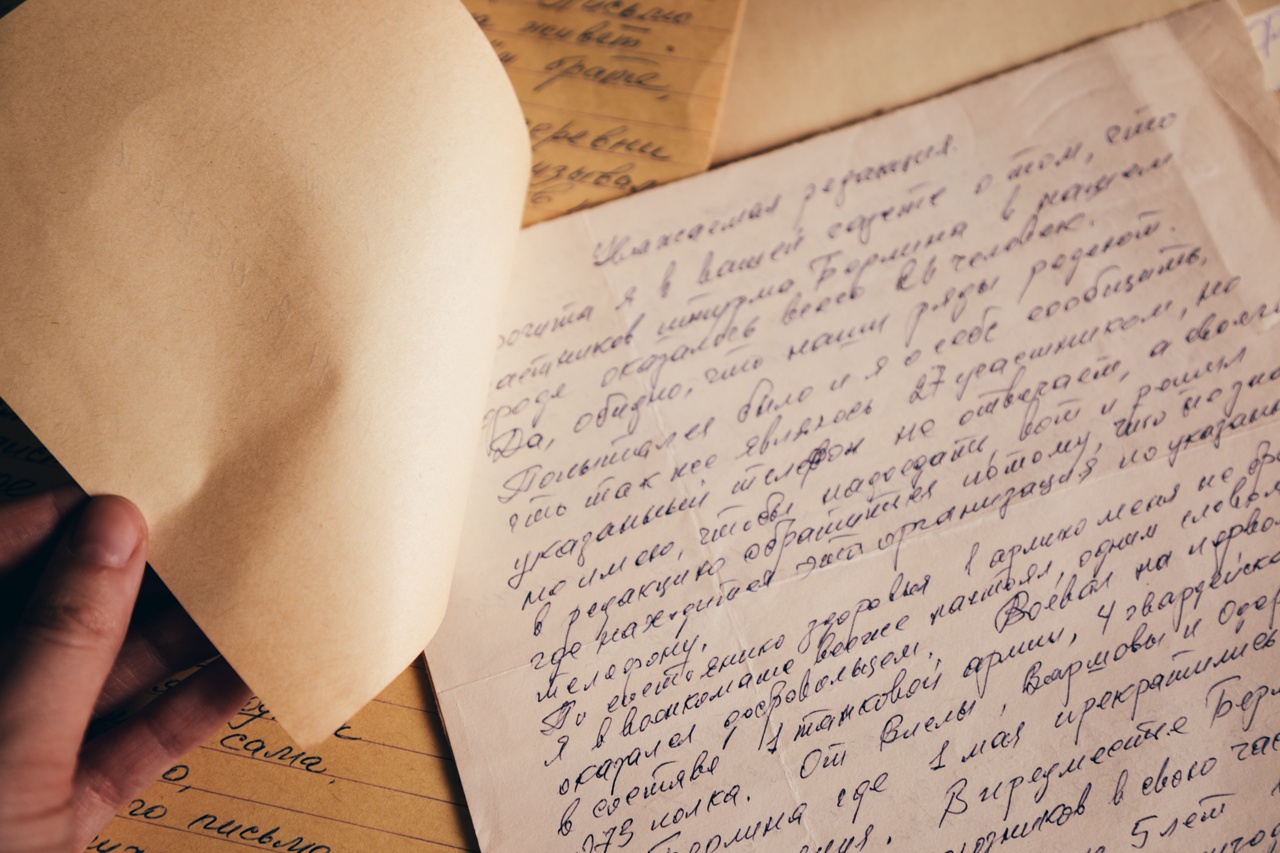 Письмо
а живёт.
брате,
деревни
Уважаемая редакция.
я в вашей газете о том, что
участников штурма Берлина в нашем
городе оказалось всего 26 человек.
Да, обидно, что наши ряды редеют.
Попытался было и я о себе сообщить,
что так же являюсь 27 участником, но
указанный телефон не отвечает, а своего
не имею, чтобы надоедать вот и решил
в редакцию обратится потому, что не зна
где находится эта организация по указан
телефону.
По состоянию здоровья в армию меня не бра
я в военкомате всё же настоял, одним словом
оказался добровольцем. Воевал на первом
в составе 1 танковой армии, 4 гвардейско
279 полка. От Вислы, Варшавы и Одер
Берлина где 1 мая прекратились
В предместье Берл
в свою час
5 лет
го письмо